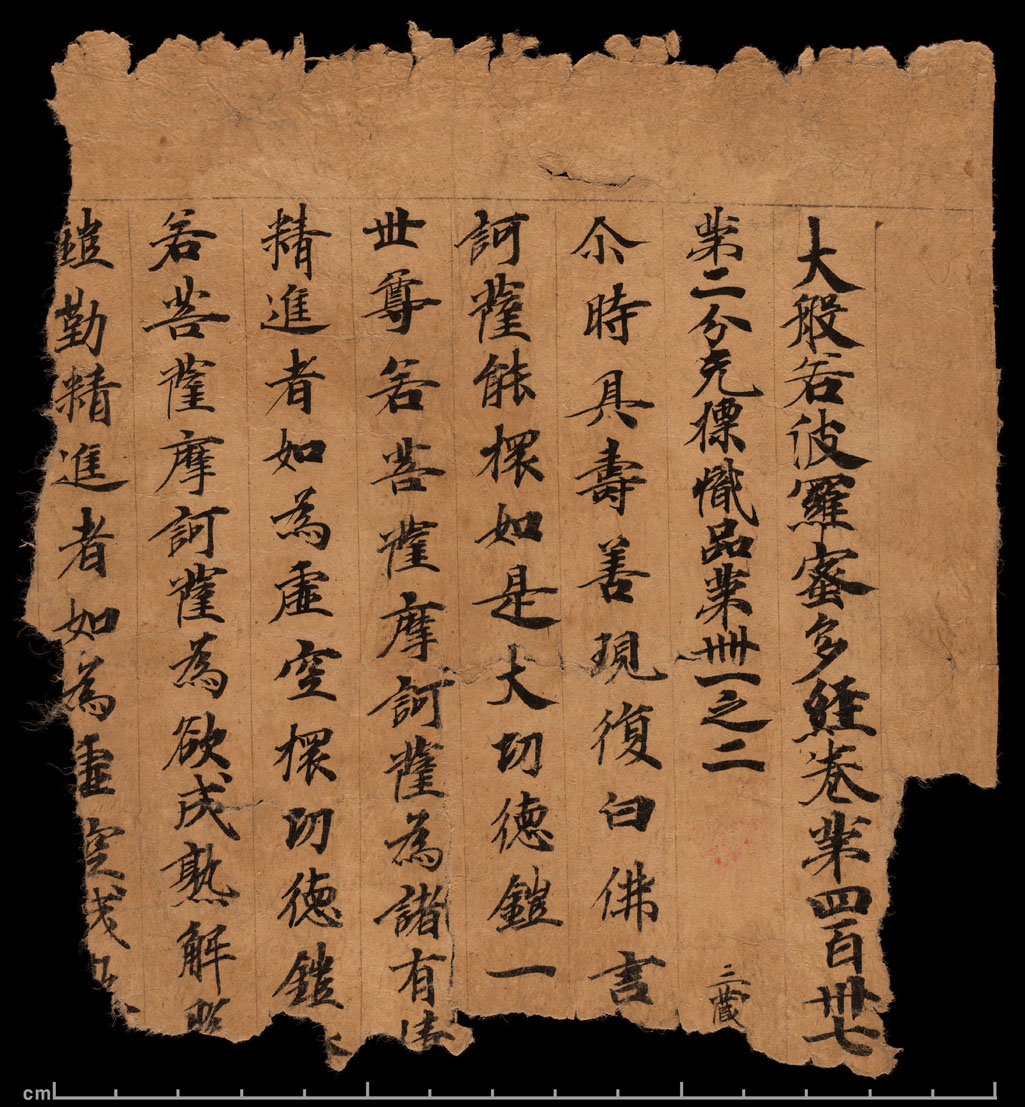 大般若波羅蜜多經卷第四百卅七
第二分无摽幟品第卌一之二 三藏
尒時具壽善現復白佛言
訶薩能擐如是大功德鎧一
世尊若菩薩摩訶薩為諸有情
精進者如為虛空擐功德鎧
若菩薩摩訶薩為欲成熟解
鎧勤精進者如為虛空成